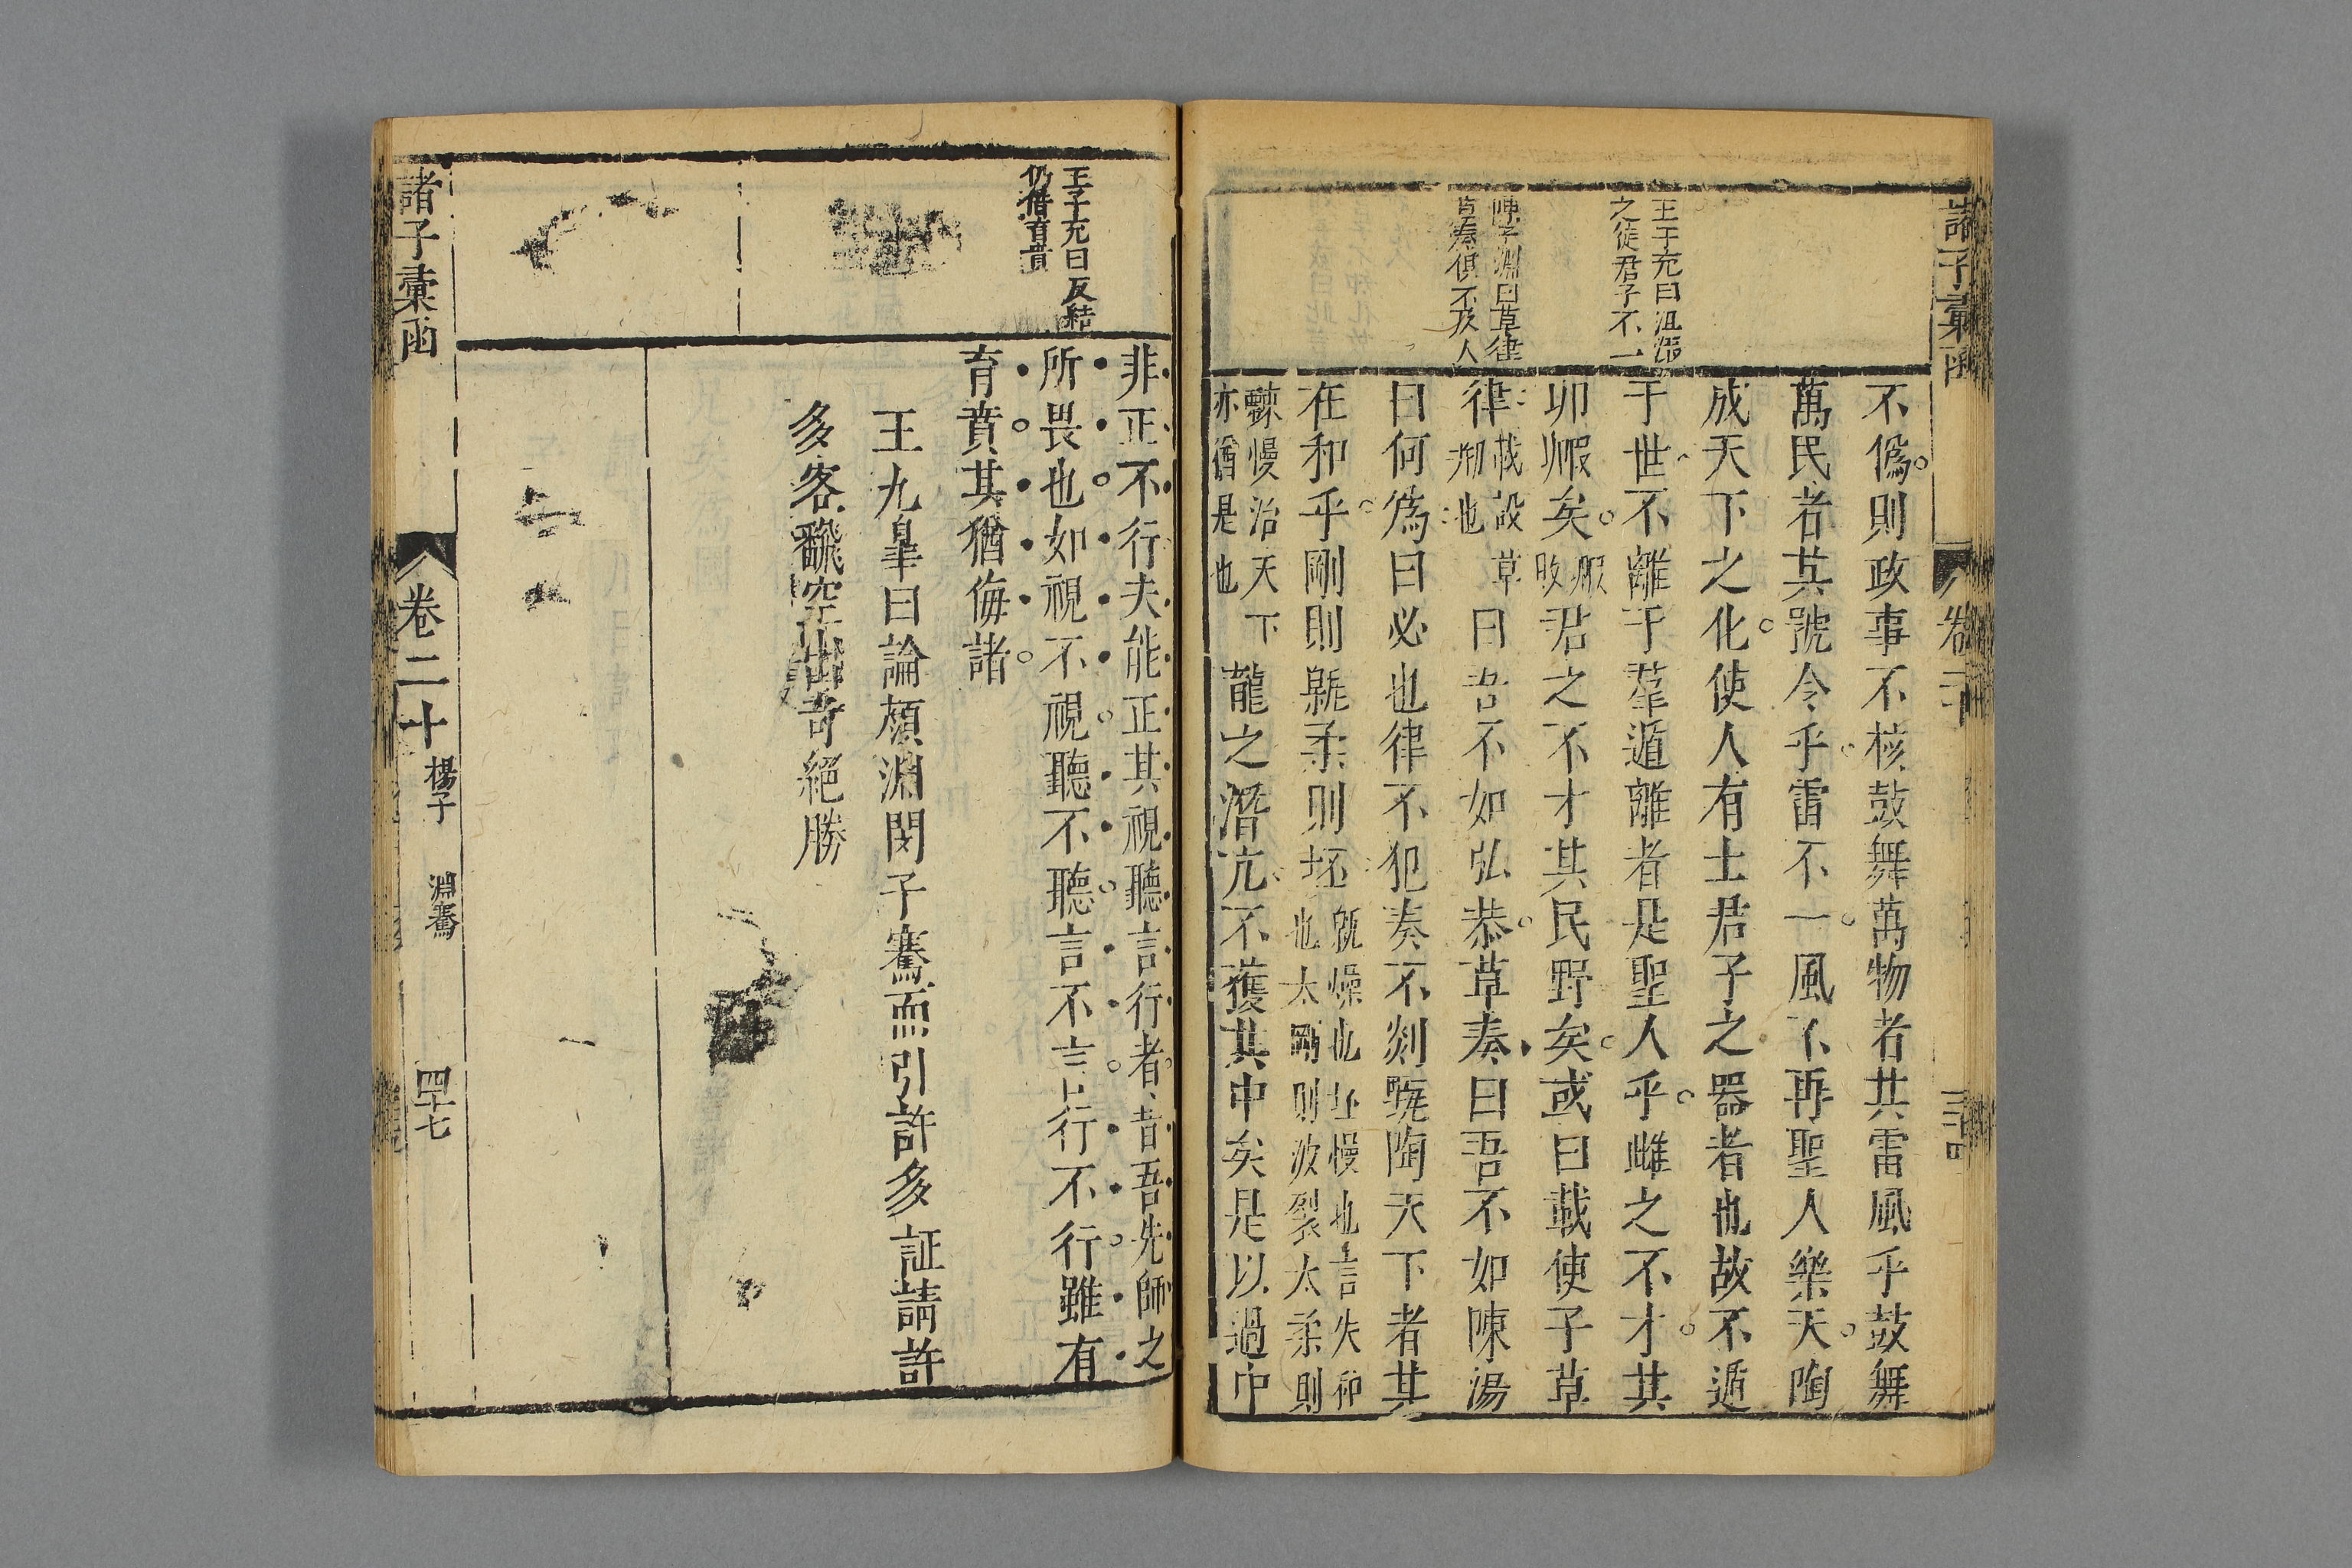 諸子彙函
卷二十
三十四
王子充曰沮溺
之徒君子不一
陳子淵曰草律
草奏俱不及人
不僞則政事不核鼓舞萬物者其雷風乎鼓舞
萬民者其號令乎雷不一風不再聖人樂天陶
成天下之化使人有士君子之器者也故不遁
于世不離于羣遁離者是聖人乎雌之不才其
卵毈矣毈
敗君之不才其民野矣或曰載使子草
律載設草
剏也曰吾不如弘恭草奏曰吾不如陳湯
曰何爲曰必也律不犯奏不剡甄陶天下者其
在和乎剛則甈柔則坯甈燥也坯慢也言失和
也太剛則破裂太柔則
慢治天下
亦猶是也龍之潛亢不獲其中矣是以過中
王子充曰反結
仍借育賁
非正不行夫能正其視聽言行者昔吾先師之
所畏也如視不視聽不聽言不言行不行雖有
育賁其猶侮諸
王九皐曰論顏淵閔子騫而引許多証請許
多客飜空出奇絕勝
諸子彙函
卷二十
楊子
淵騫
四十七